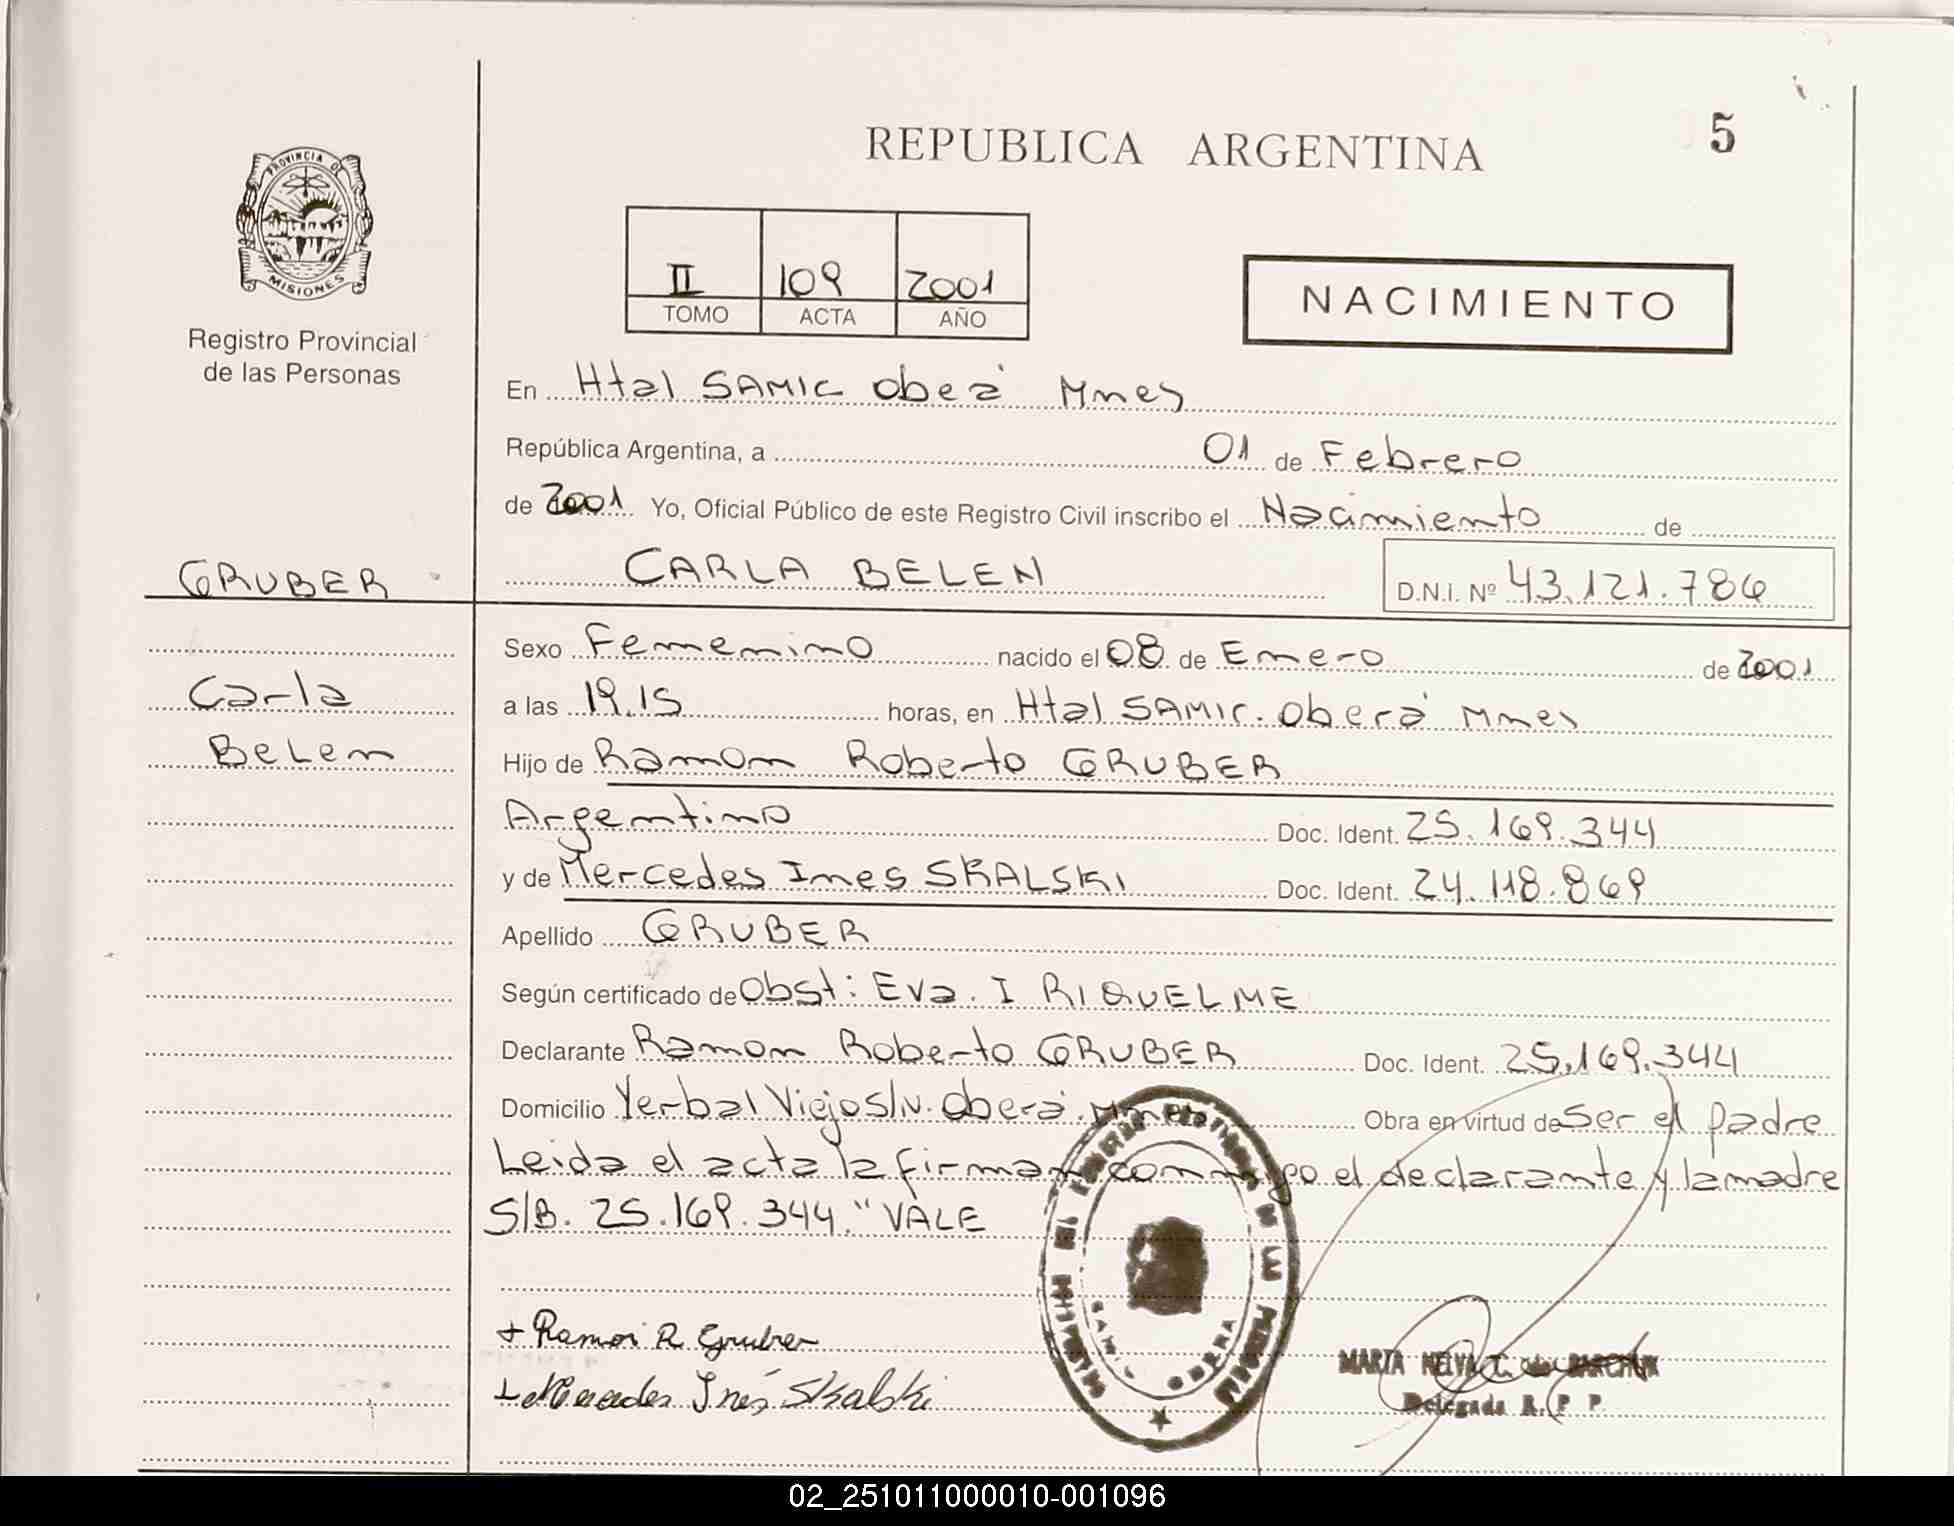 5
REPUBLICA ARGENTINA
PROVINCIA DE
MISIONES
Registro Provincial
de las Personas
II 109 2001
TOMO ACTA AÑO
NACIMIENTO
En Htal SAMIC Oberá Mnes
República Argentina, a 01 de Febrero
de 2001 Yo, Oficial Público de este Registro Civil inscribo el Nacimiento de
GRUBER
CARLA BELEN D.N.I. Nº 43.121.786
Carla
Belen
Sexo Femenino nacido el 08 de Enero de 2001
a las 19.15 horas, en Htal SAMIC. Oberá Mnes
Hijo de Ramon Roberto GRUBER
Argentino Doc. Ident. 25.169.344
y de Mercedes Ines SKALSKI Doc. Ident. 24.118.869
Apellido GRUBER
Según certificado de Obst: Eva. I RIQUELME
Declarante Ramon Roberto GRUBER Doc. Ident. 25.169.344
Domicilio Yerbal Viejo S/N. Oberá. Mnes Obra en virtud de Ser el padre
Leida el acta la firman conmigo el declarante y la madre
S/B. 25.169.344." VALE
+ Ramon R Gruber
+ Mercedes Inés Skalski
OBERA
MARTA NELVA T. de
Delegada R. P P
02_251011000010-001096